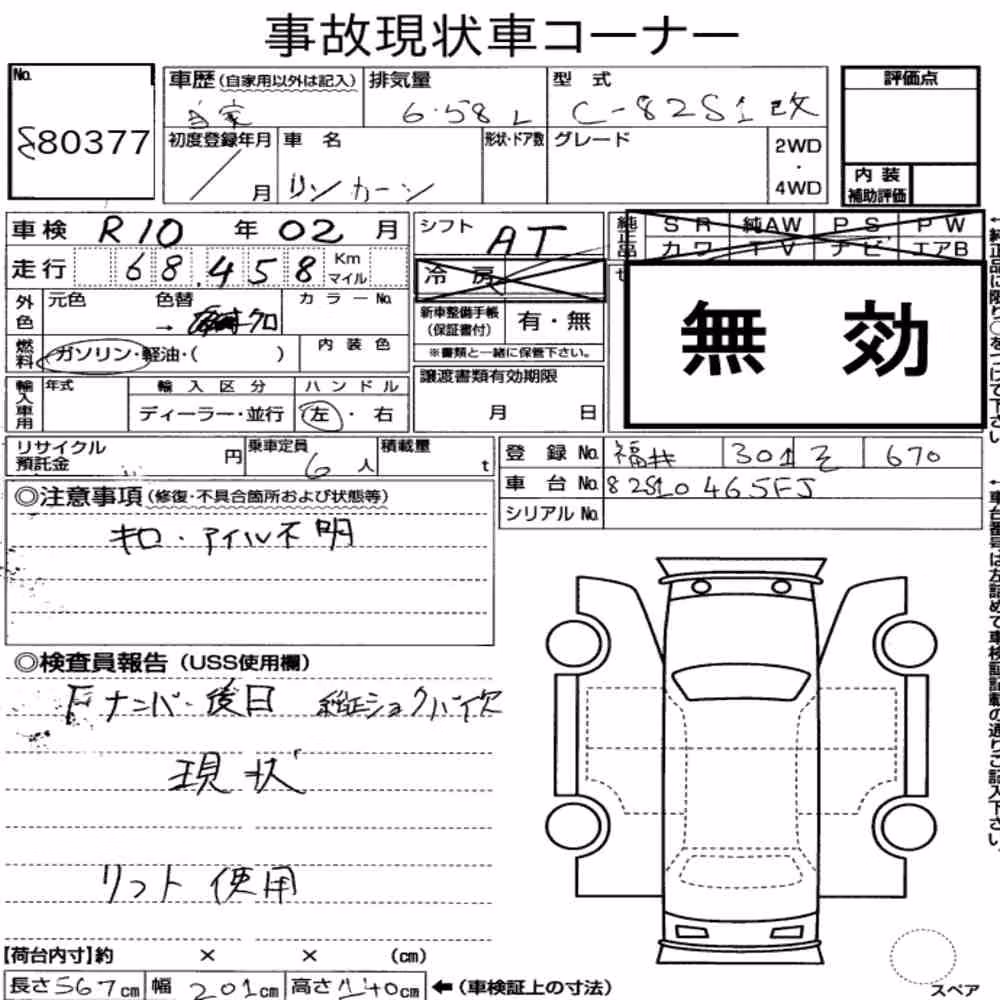 事故現状車コーナー
No. 80377
車歴(自家用以外は記入) 自家
排気量 6.58 L
型式 C-82S1改
評価点
初度登録年月 / 月
車名 リンカーン
形状・ドア数
グレード
2WD・4WD
内装補助評価
車検 R10年02月
シフト AT
純正品 SR 純AW PS PW
カワ TV ナビ エアB
走行 68,458 Km マイル
冷房
無効
外色 元色 色替 → クロ カラーNo.
新車整備手帳(保証書付) 有・無
※書類と一緒に保管下さい。
燃料 ガソリン・軽油・( ) 内装色
譲渡書類有効期限 月 日
輸入車用 年式 輸入区分 ハンドル
ディーラー・並行 左・右
リサイクル預託金 円
乗車定員 6人
積載量 t
登録No. 福井 301 そ 670
車台No. 82S10465FJ
シリアルNo.
◎注意事項(修復・不具合箇所および状態等)
キロ・マイル不明
◎検査員報告(USS使用欄)
Fナンバー後日 純正ショックハイ欠
現状
リフト使用
【荷台内寸】約 × × (cm)
長さ567cm 幅201cm 高さ140cm ←(車検証上の寸法)
スペア
←純正品に限り○をつけて下さい
←車台番号は左詰めで車検証記載の通りご記入下さい。